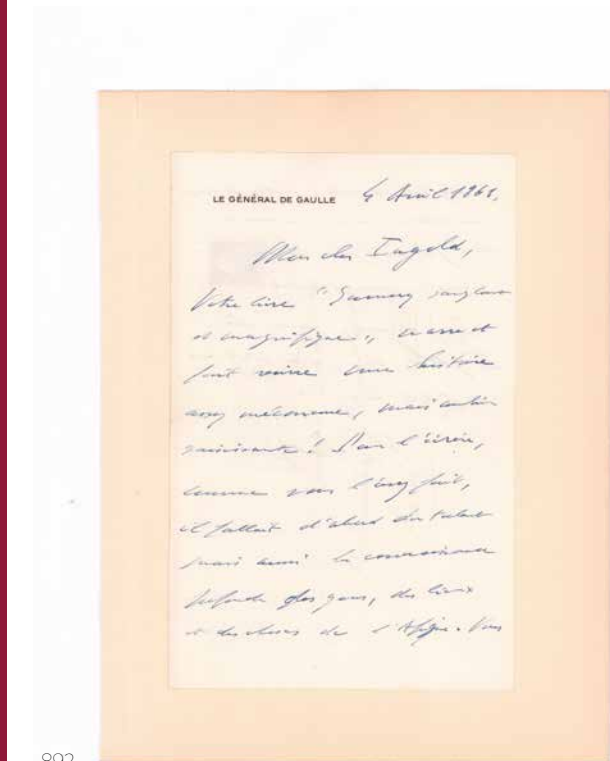 LE GÉNÉRAL DE GAULLE 4 Avril 1961.
Mon cher Ingold,
Votre livre "Samory sanglant
et magnifique", narre et
fait vivre une histoire
assez méconnue, mais combien
saisissante ! Pour l'écrire,
comme vous l'avez fait,
il fallait d'abord du talent
mais aussi la connaissance
profonde des gens, des lieux
et des choses de l'Afrique. Vous
892